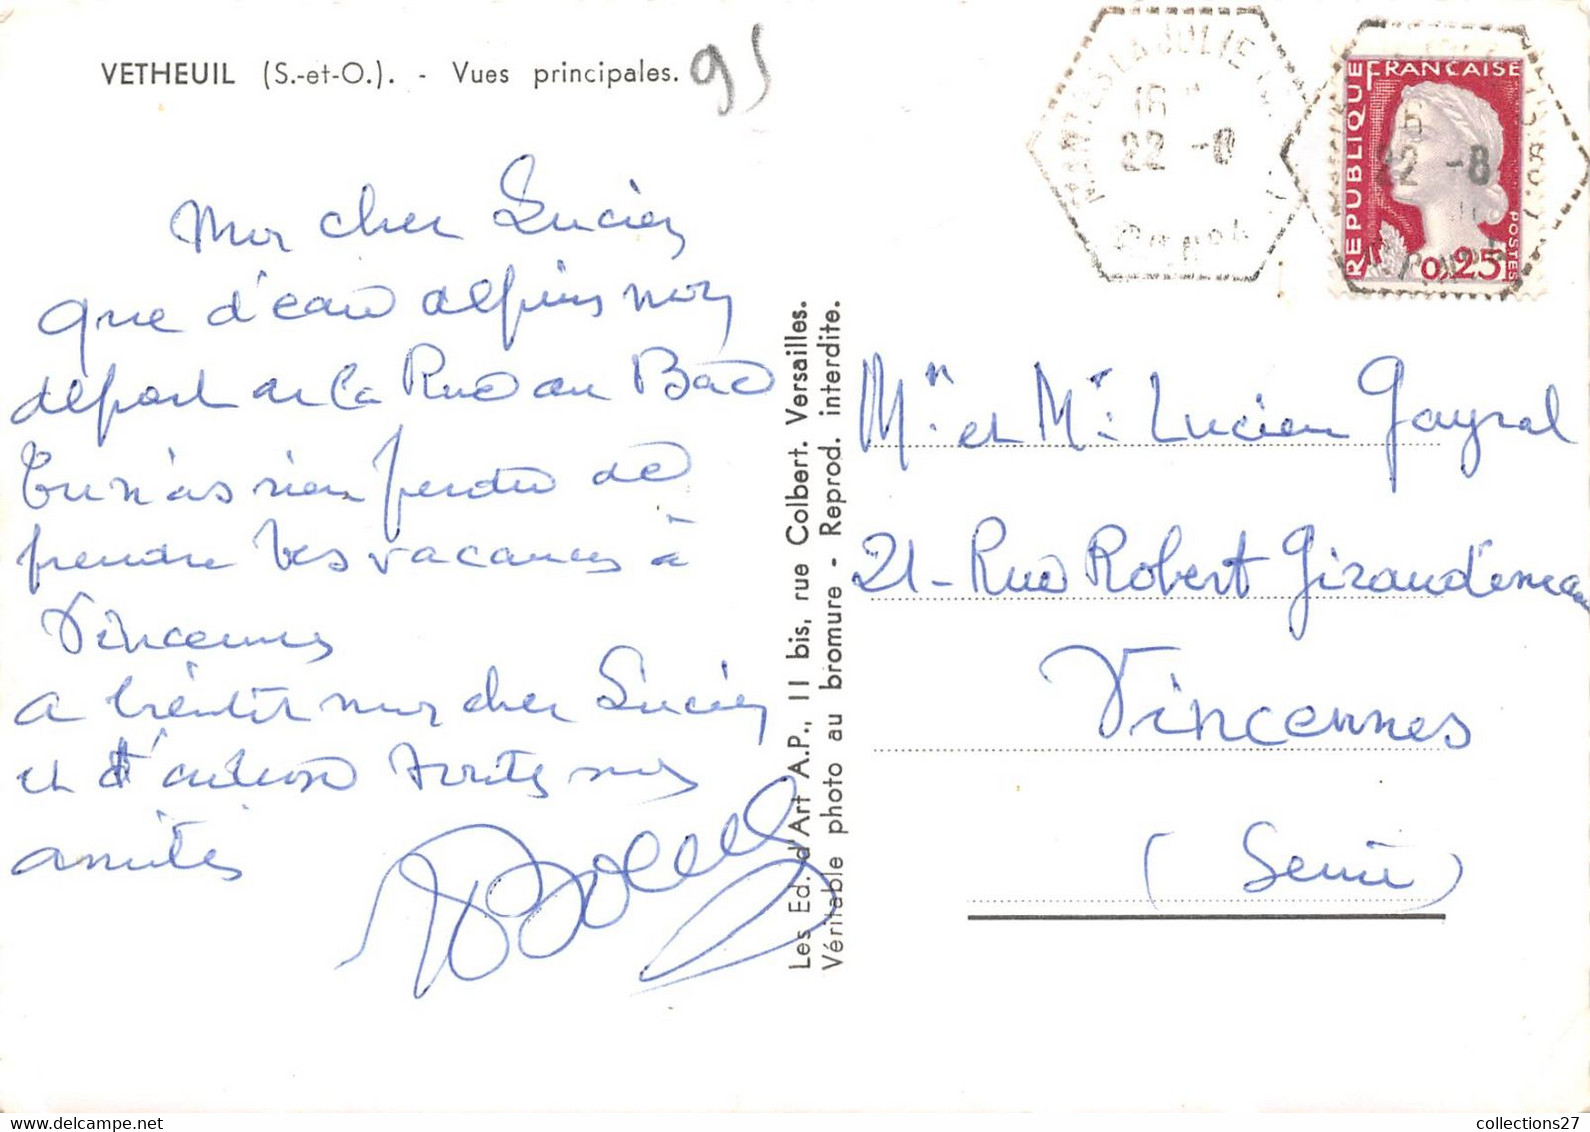 VETHEUIL (S.-et-O.). - Vues principales.
95
Mon cher Lucien
que d'eau depuis mon
départ de la Rue du Bac
Tu n'as rien perdu de
prendre tes vacances à
Vincennes
a bientôt mon cher Lucien
et toutes mes
amitiés
Les Ed. d'Art A.P., 11 bis, rue Colbert. Versailles.
Véritable photo au bromure - Reprod. interdite.
MANTES LA JOLIE
16
22 -8
22 -8
REPUBLIQUE FRANCAISE
POSTES
0,25
Mr et Me Lucien Gayral
21 - Rue Robert Giraudineau
Vincennes
(Seine)
collections27